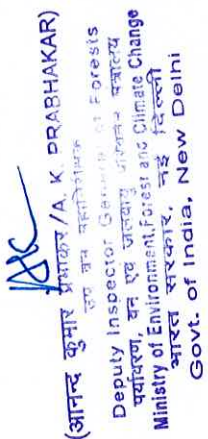 (आनन्द कुमार प्रभाकर/A. K. PRABHAKAR)
उप वन महानिरीक्षक
Deputy Inspector General of Forests
पर्यावरण, वन एवं जलवायु परिवर्तन मंत्रालय
Ministry of Environment, Forest and Climate Change
भारत सरकार, नई दिल्ली
Govt. of India, New Delhi